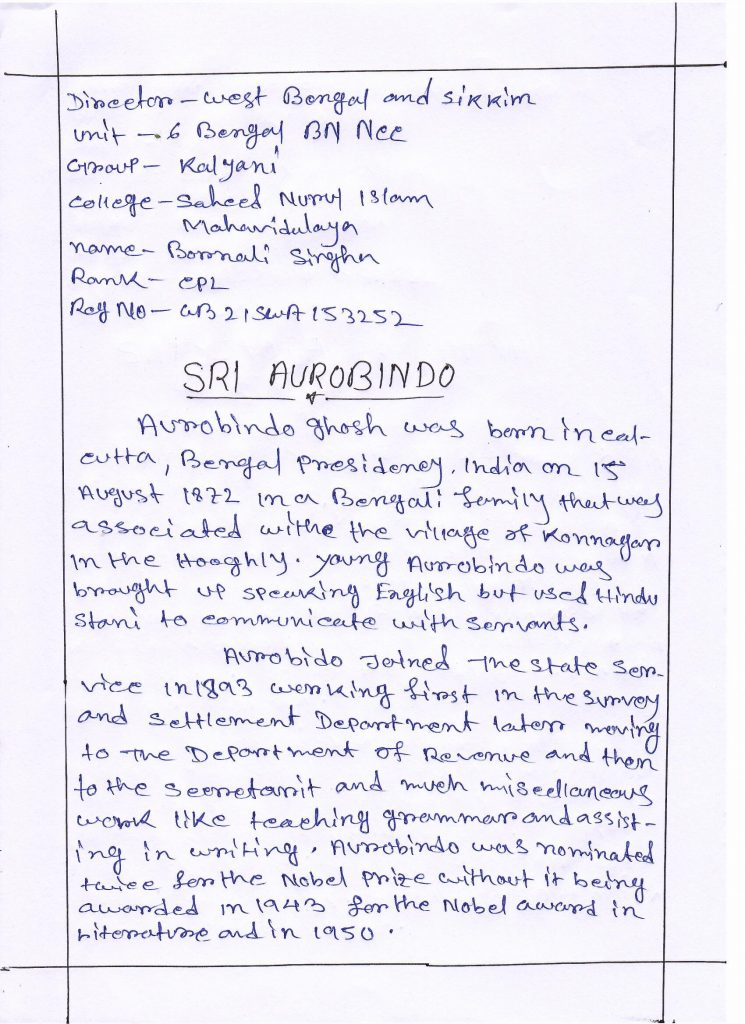 Director - West Bengal and Sikkim
unit - 6 Bengal BN NCC
Group - Kalyani
College - Saheed Nurul Islam
Mahavidalaya
name - Bornali Singha
Rank - CPL
Reg No - WB21SWA153252
SRI AUROBINDO
Aurobindo ghosh was born in cal-
cutta, Bengal Presidency. India on 15
August 1872 in a Bengali family that was
associated withe the village of Konnagar
in the Hooghly. young Aurobindo was
brought up speaking English but used Hindu
stani to communicate with servants.
Aurobido Joined The state ser-
vice in 1893 working first in the survey
and settlement Department later moving
to The Department of Revenue and then
to the secretarit and much miscellaneous
work like teaching grammar and assist-
ing in writing. Aurobindo was nominated
twice for the Nobel prize without it being
awarded in 1943 for the Nobel award in
Literature and in 1950.